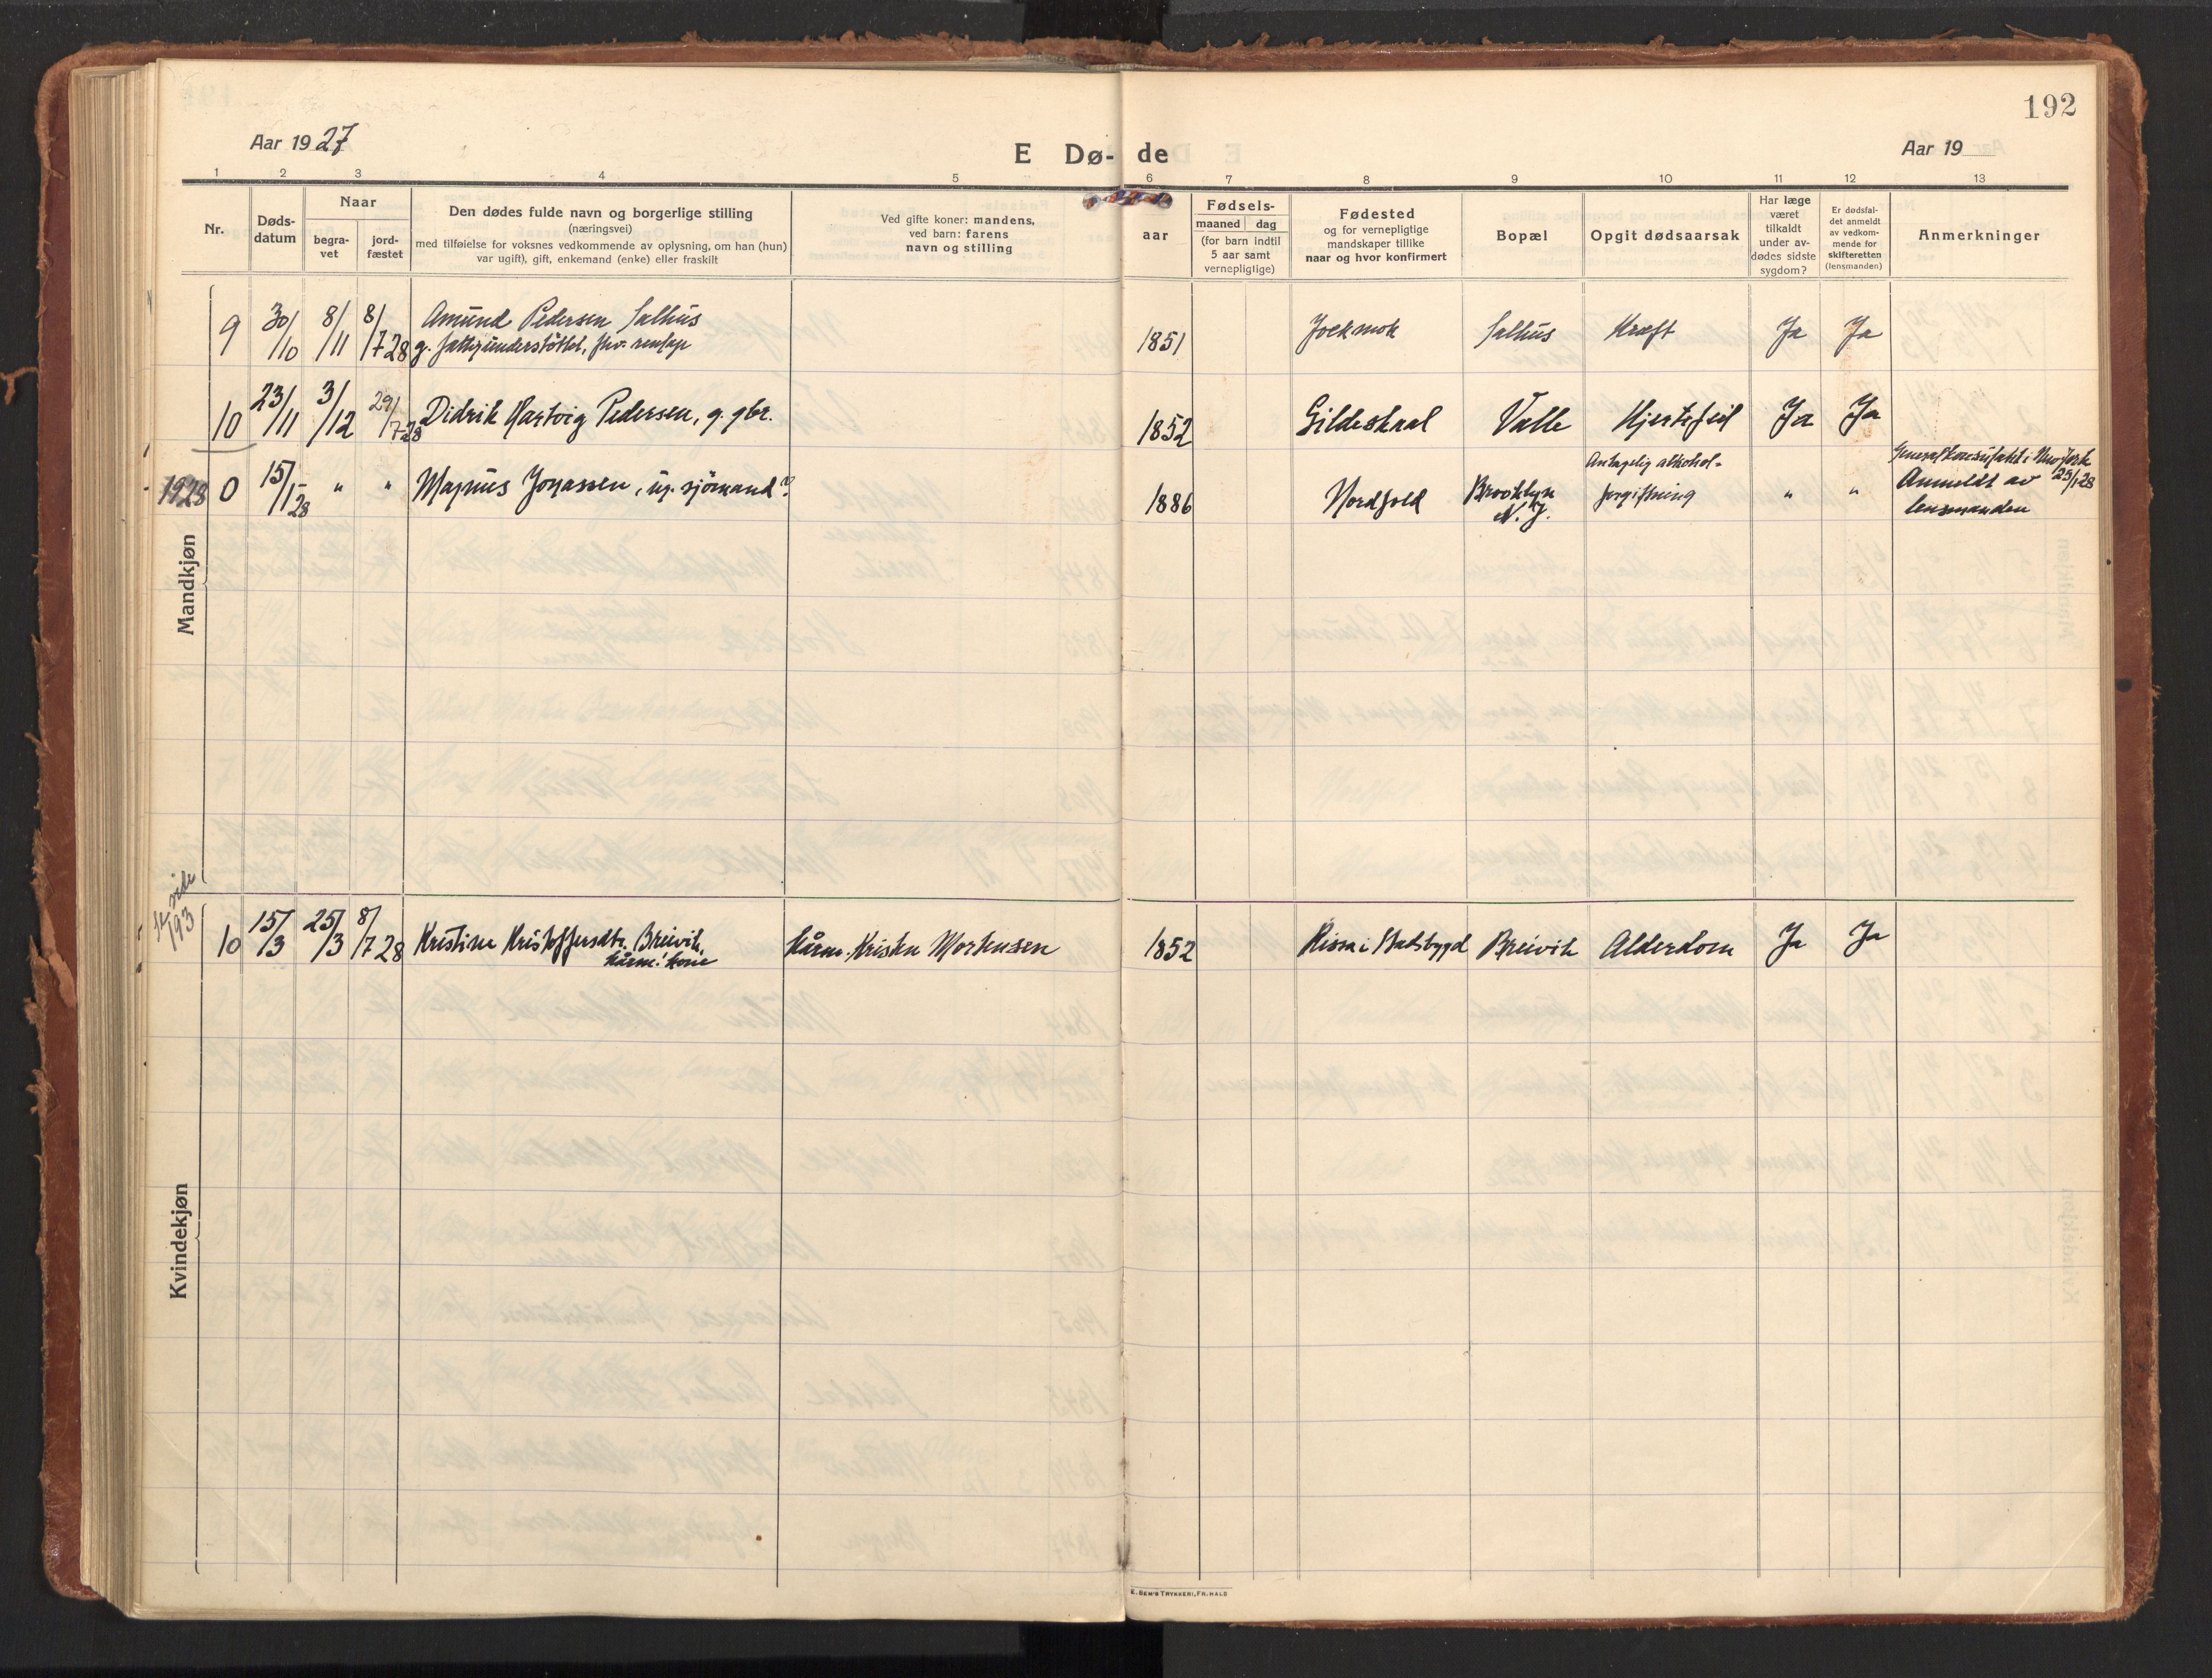 192
Aar 1927
E Dø- de
Aar 19
1 2 3 4 5 6 7 8 9 10 11 12 13
Nr.
Døds-
datum
Naar
begra-
vet
jord-
fæstet
Den dødes fulde navn og borgerlige stilling
(næringsvei)
med tilføielse for voksnes vedkommende av oplysning, om han (hun)
var ugift), gift, enkemand (enke) eller fraskilt
Ved gifte koner: mandens,
ved barn: farens
navn og stilling
aar
Fødsels-
maaned dag
(for barn indtil
5 aar samt
vernepligtige)
Fødested
og for vernepligtige
mandskaper tillike
naar og hvor konfirmert
Bopæl
Opgit dødsaarsak
Har læge
været
tilkaldt
under av-
dødes sidste
sygdom?
Er dødsfal-
det anmeldt
av vedkom-
mende for
skifteretten
(lensmanden)
Anmerkninger
Mandkjøn
9 30/10 8/11 8/7 28 Amund Pedersen Salhus 1851 Jockmok Salhus Kræft Ja Ja
g. fattigunderstöttet, fhv.
10 23/11 3/12 29/7 28 Didrik Hartvig Pedersen, g. gbr. 1852 Gildeskaal Valle Hjertefeil Ja Ja
1928 0 15/1 28 " " Magnus Jonassen, ug. sjömand? 1886 Nordfold Brooklyn N. J. Antagelig alkohol-
forgiftning " " Generalkonsulatet i New York 25/1 28
Anmeldt av
lensmanden
Kvindekjøn
side
193
10 15/3 25/3 8/7 28 Kristine Kristoffersdtr. Breivik, Kårm. Kristen Mortensen 1852 Rissa i Stadsbygd Breivik Alderdom Ja Ja
kårm. kone
E. SEM'S TRYKKERI, FR.HALD